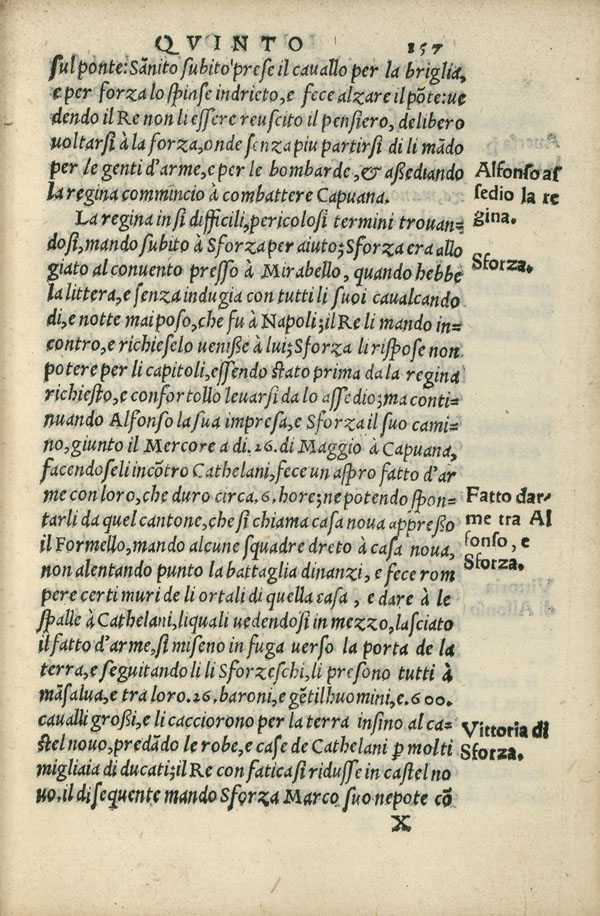 QVINTO 157
sul ponte: Sãnito subito prese il cauallo per la briglia,
e per forza lo spiase indrieto, e fece alzare il põte: ue
dendo il Re non li essere reuscito il pensiero, delibero
uoltarsi à la forza, onde senza piu partirsi di li mãdo
per le genti d'arme, e per le bombarde, & aßediando
la regina commincio à combattere Capuana.
Alfonso as
sedio la re
gina.
La regina in si difficili, pericolosi termini trouan=
dosi, mando subito à Sforza per aiuto; Sforza era allo
giato al conuento presso à Mirabello, quando hebbe
la littera, e senza indugia con tutti li suoi caualcando
di, e notte mai poso, che fu à Napoli; il Re li mando in=
contro, e richieselo ueniße à lui; Sforza li rispose non
potere per li capitoli, essendo stato prima da la regina
richiesto, e confortollo leuarsi da lo assedio; ma conti=
nuando Alfonso la sua impresa, e Sforza il suo cami=
no, giunto il Mercore a di .26. di Maggio à Capuana,
facendoseli incõtro Cathelani, fece un aspro fatto d'ar
me con loro, che duro circa .6. hore; ne potendo spon=
tarli da quel cantone, che si chiama casa noua appreßo
il Formello, mando alcune squadre dreto à casa noua,
non alentando punto la battaglia dinanzi, e fece rom
pere certi muri de li ortali di quella casa, e dare à le
spalle à Cathelani, li quali uedendosi in mezzo, lasciato
il fatto d'arme, si miseno in fuga uerso la porta de la
terra, e seguitandoli li Sforzeschi, li presono tutti à
mãsalua, e tra loro .26. baroni, e gẽtilhuomini, e .600.
caualli großi, e li cacciorono per la terra insino al ca=
stel nouo, predãdo le robe, e case de Cathelani ꝑ molti
migliaia di ducati; il Re con fatica si ridusse in castel no
uo. il di sequente mando Sforza Marco suo nepote cõ
Sforza.
Fatto dar-
me tra Al
fonso, e
Sforza.
Vittoria di
Sforza.
X